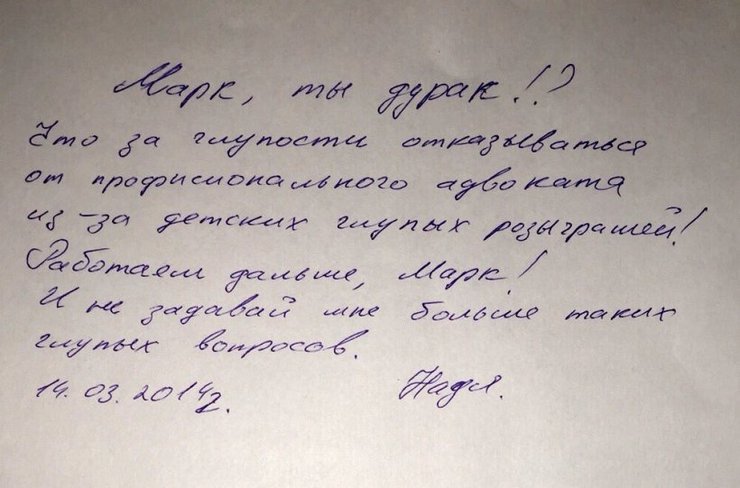 Марк, ты дурак!?
Что за глупости отказываться
от профисионального адвоката
из-за детских глупых розыграшей!
Работаем дальше, Марк!
И не задавай мне больше таких
глупых вопросов.
14.03.2014г. Надя.